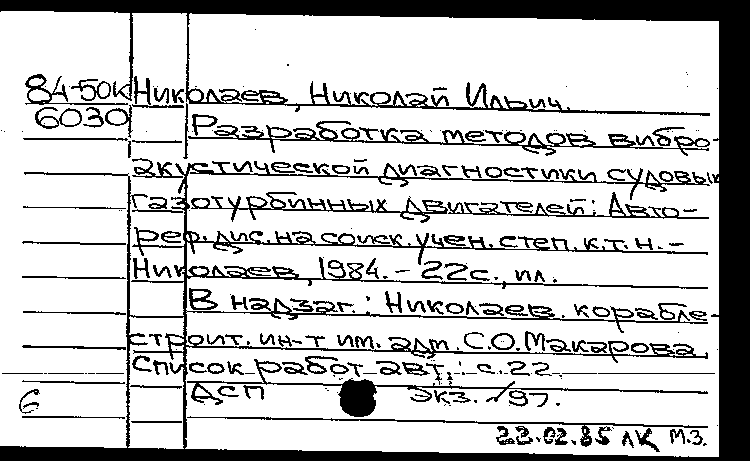 84-50К Николаев, Николай Ильич.
6030 Разработка методов вибро-
акустической диагностики судовых
газотурбинных двигателей: Авто-
реф. дис. на соиск. учен. степ. к.т.н. -
Николаев, 1984. - 22с., ил.
В надзаг.: Николаев. корабле-
строит. ин-т им. адм. С.О. Макарова.
Список работ авт.: с. 22.
6 ДСП Экз. №97.
23.02.85 ЛК М.З.